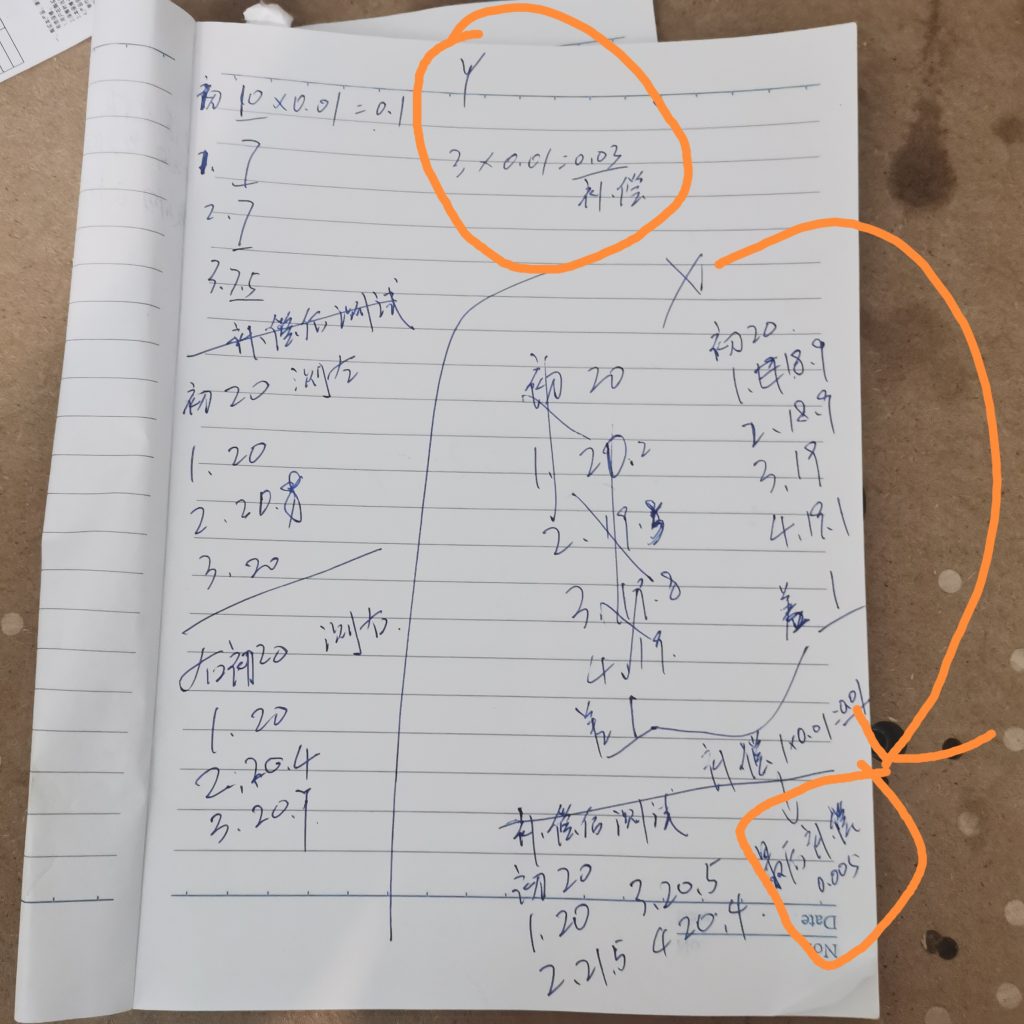 初 10 ×0.01=0.1
1. 7
2. 7
3. 7.5
补偿后测试
初20 测左
1. 20
2. 20.8
3. 20
右初20 测右.
1. 20
2. 20.4
3. 20.7
Y
3 ×0.01=0.03
补偿
X
初 20
1. 20.2
2. 19.5
3. 19.8
4. 19.
差 1
初20
1. 18.9
2. 18.9
3. 19
4. 19.1
差 1
补偿 1×0.01=0.01
最后补偿
0.005
补偿后测试
初20
1. 20
2. 21.5
3. 20.5
4 20.4
Date
No.